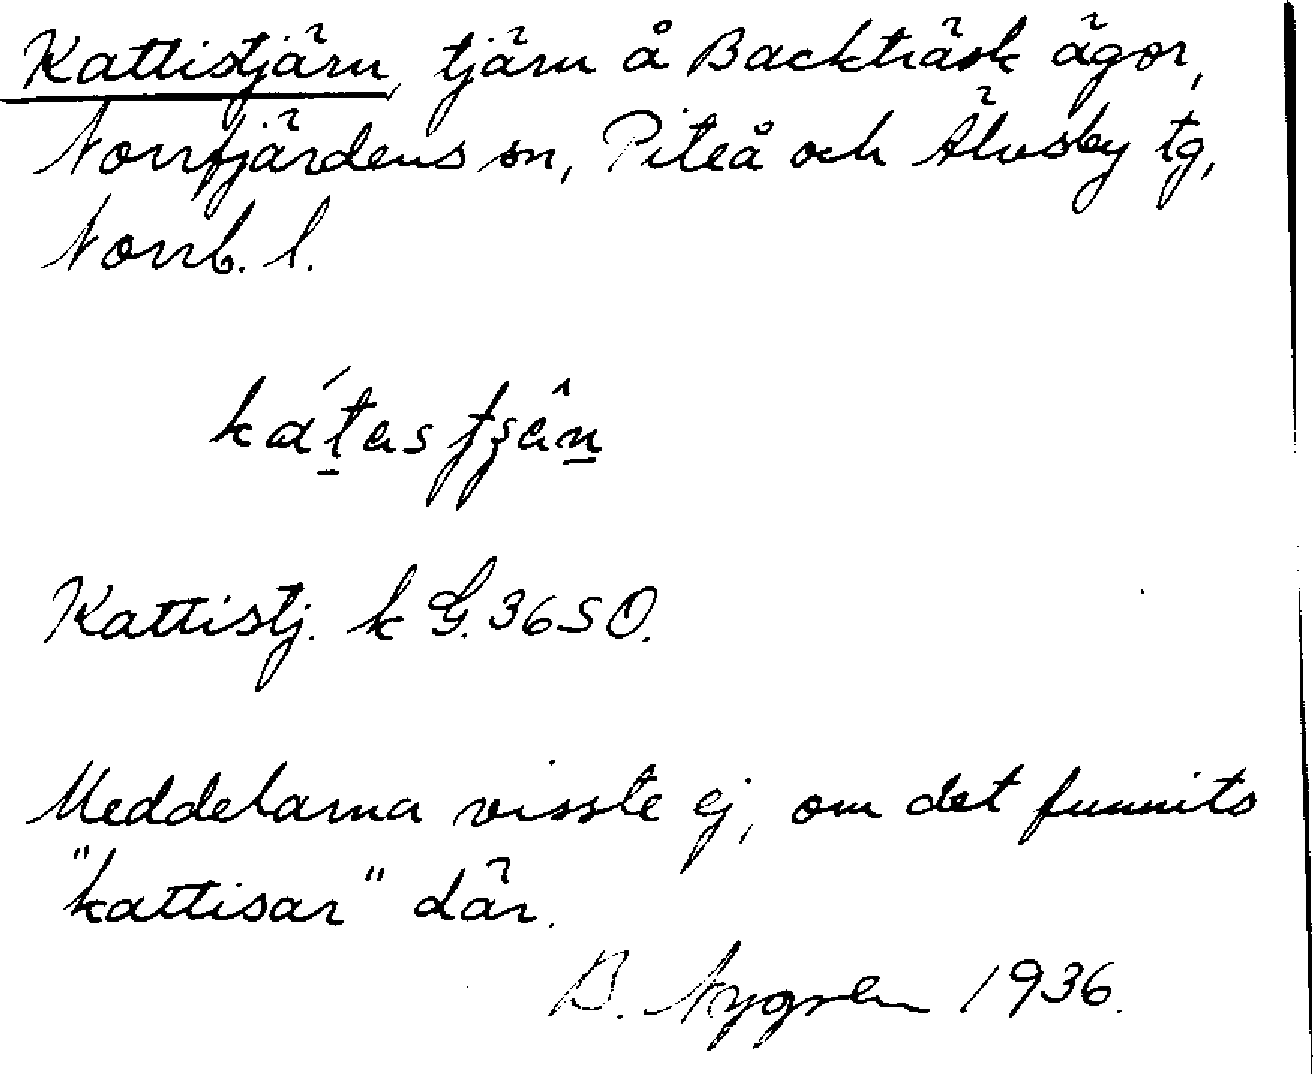 Kattistjärn, tjärn å Backträsk ägor,
Norrfjärdens sn, Piteå och Älvsby tg,
Norrb. l.
Kattistj. k G. 36 SO.
Meddelarna visste ej, om det funnits
"kattisar" där.
B. Nygren 1936.